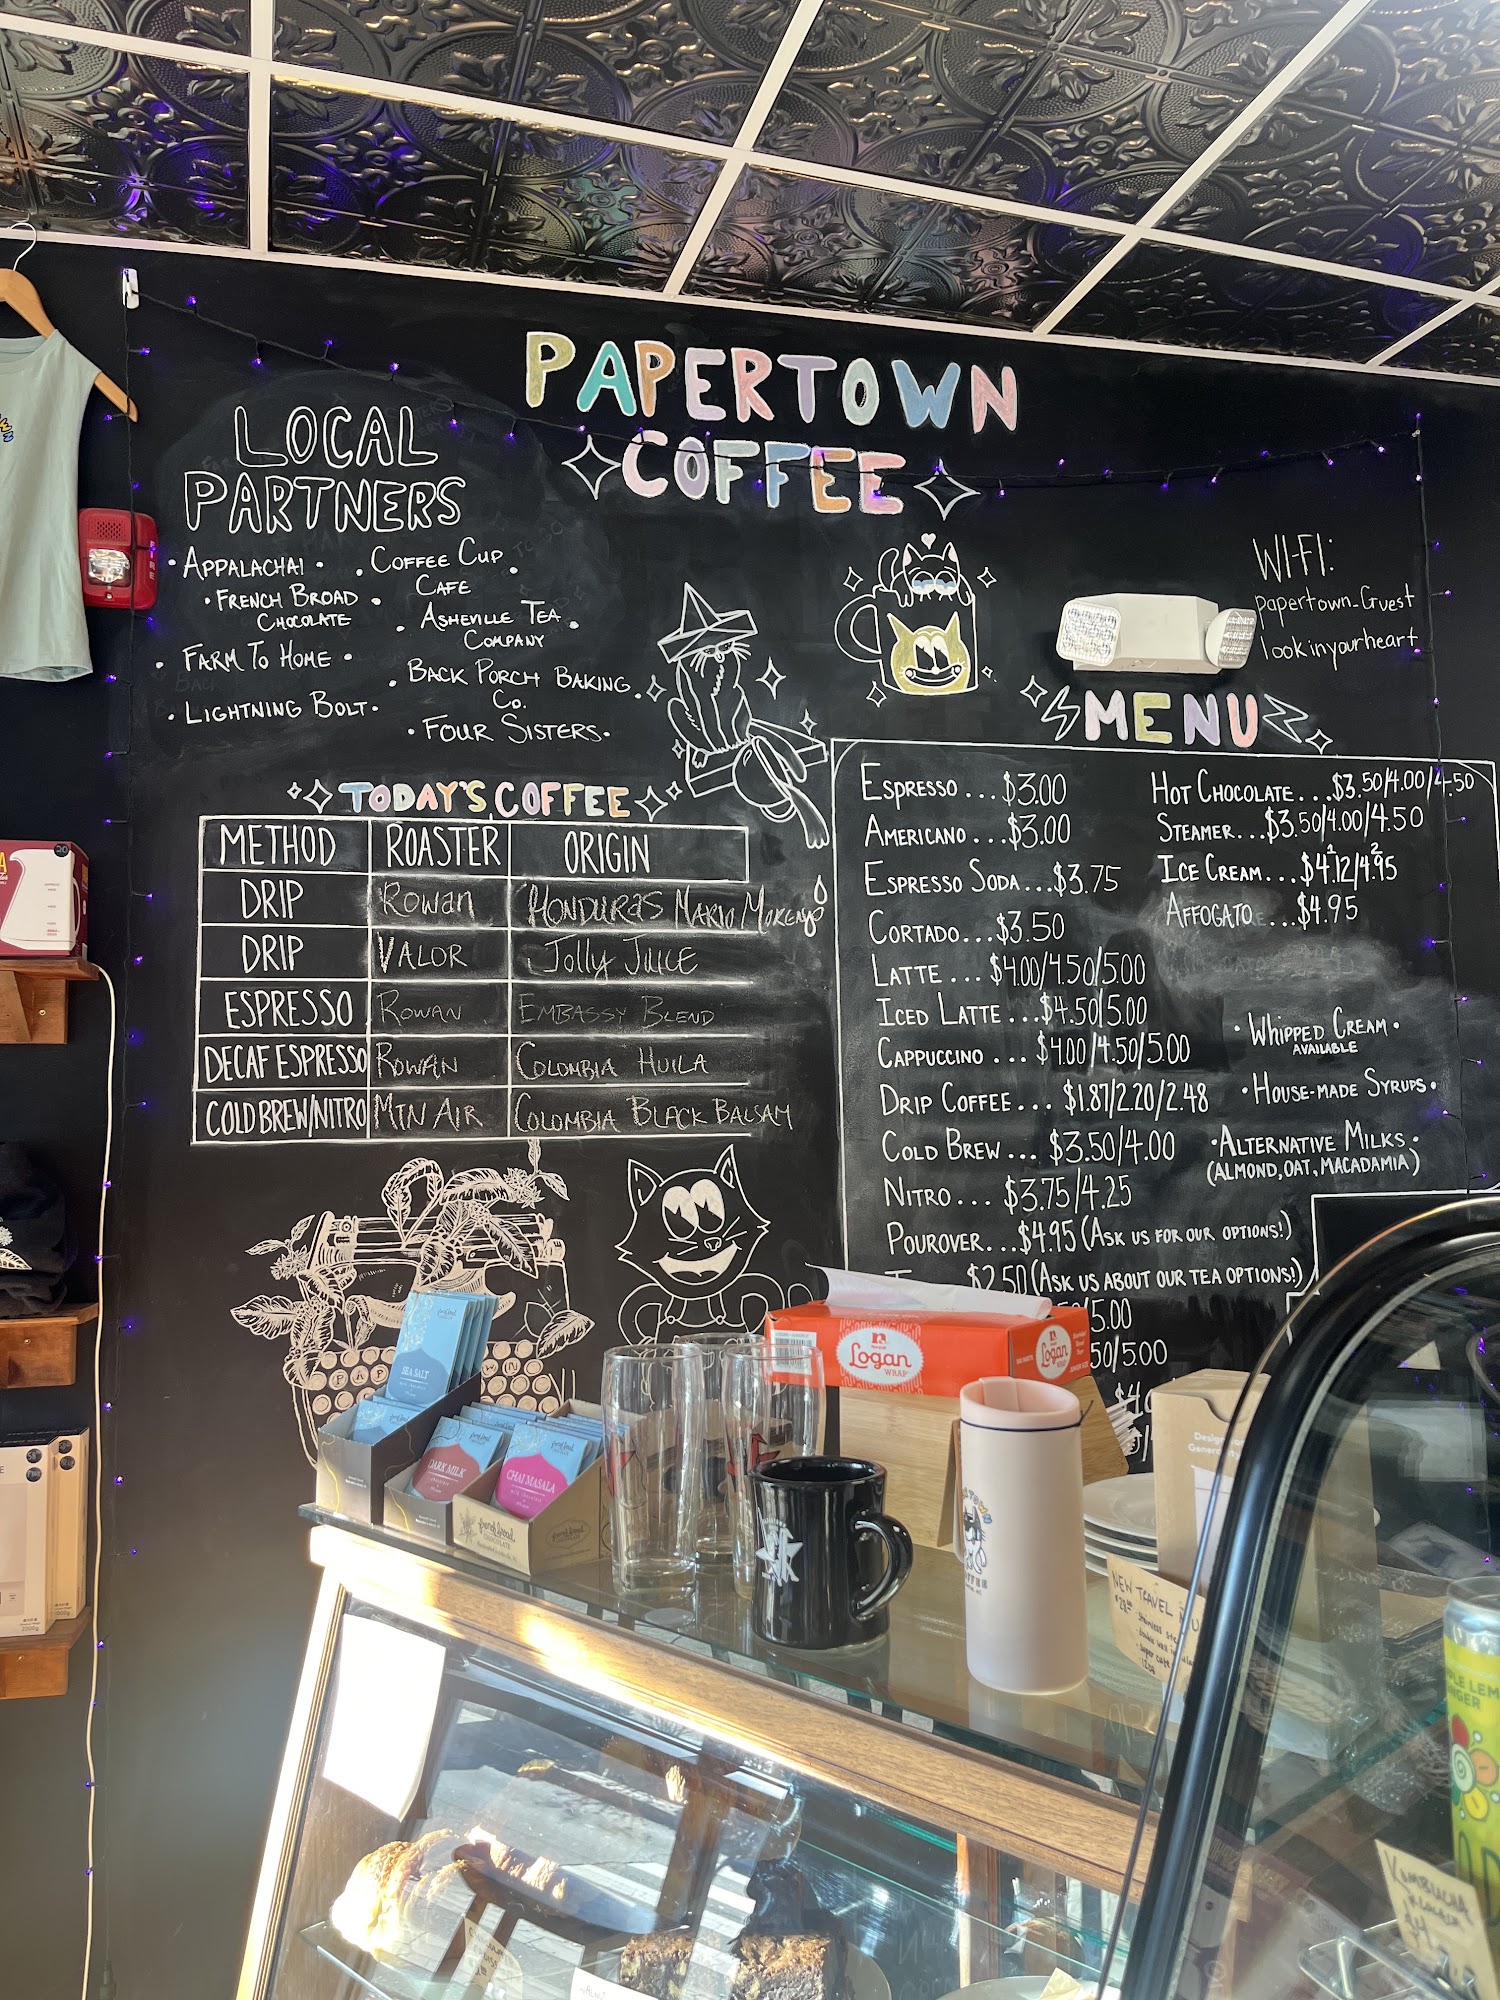 PAPERTOWN
COFFEE
LOCAL
PARTNERS
• APPALACHAI •
• FRENCH BROAD •
CHOCOLATE
• FARM TO HOME •
• LIGHTNING BOLT •
• COFFEE CUP •
CAFE
• ASHEVILLE TEA •
COMPANY
• BACK PORCH BAKING •
CO.
• FOUR SISTERS •
WI-FI:
papertown_Guest
lookinyourheart
TODAY'S COFFEE
METHOD ROASTER ORIGIN
DRIP Rowan HONDURAS MARIO MORENO
DRIP VALOR Jolly JUICE
ESPRESSO ROWAN EMBASSY BLEND
DECAF ESPRESSO ROWAN COLOMBIA HUILA
COLD BREW/NITRO MTN AIR COLOMBIA BLACK BALSAM
MENU
ESPRESSO...$3.00
AMERICANO...$3.00
ESPRESSO SODA...$3.75
CORTADO...$3.50
LATTE...$4.00/4.50/5.00
ICED LATTE...$4.50/5.00
CAPPUCCINO...$4.00/4.50/5.00
DRIP COFFEE...$1.87/2.20/2.48
COLD BREW...$3.50/4.00
NITRO...$3.75/4.25
POUROVER...$4.95 (ASK US FOR OUR OPTIONS!)
$2.50 (ASK US ABOUT OUR TEA OPTIONS!)
/5.00
50/5.00
HOT CHOCOLATE...$3.50/4.00/4.50
STEAMER...$3.50/4.00/4.50
ICE CREAM...$4.12/4.95
1 2
AFFOGATO...$4.95
• WHIPPED CREAM •
AVAILABLE
• HOUSE-MADE SYRUPS •
• ALTERNATIVE MILKS •
(ALMOND, OAT, MACADAMIA)
FIRE
SEA SALT
DARK MILK
CHAI MASALA
french broad
CHOCOLATE
Logan
WRAP
Logan
NEW TRAVEL
COFFEE
KOMBUCHA